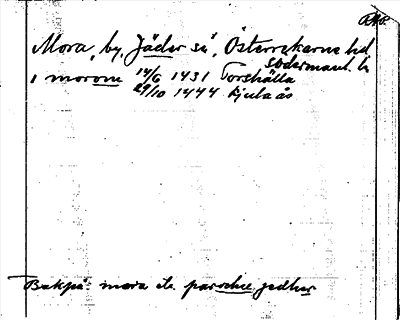 Mora, by, Jäder sn, Österrekarne hd
Södermanl. l.
i morom 14/6 1431 Torshälla
29/10 1444 Kjula ås
Bakpå: mora etc. parochie jædher